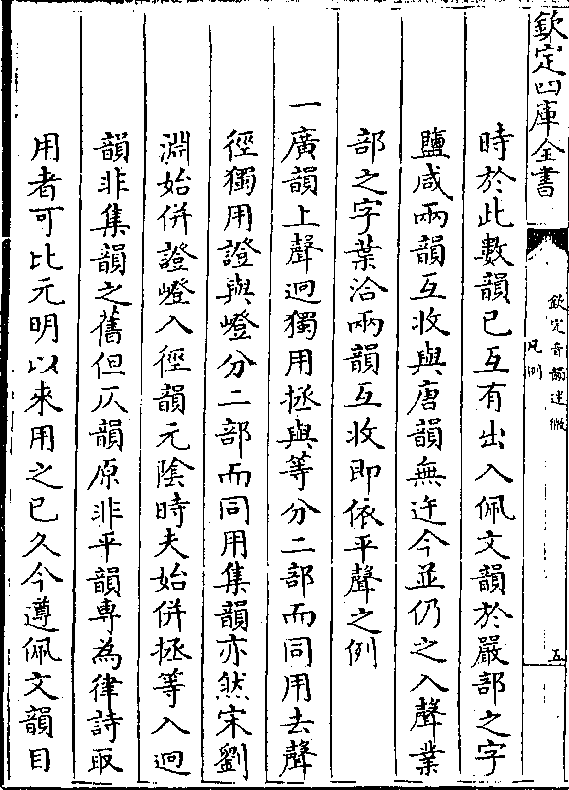 欽定四庫全書
欽定音韻述微
凡例
五
時於此數韻已互有出入佩文韻於嚴部之字
鹽咸兩韻互收與唐韻無迕今並仍之入聲業
部之字葉洽兩韻互收即依平聲之例
一廣韻上聲迥獨用拯與等分二部而同用去聲
徑獨用證與嶝分二部而同用集韻亦然宋劉
淵始併證嶝入徑韻元陰時夫始併拯等入迥
韻非集韻之舊但仄韻原非平韻専為律詩取
用者可比元明以來用之已久今遵佩文韻目